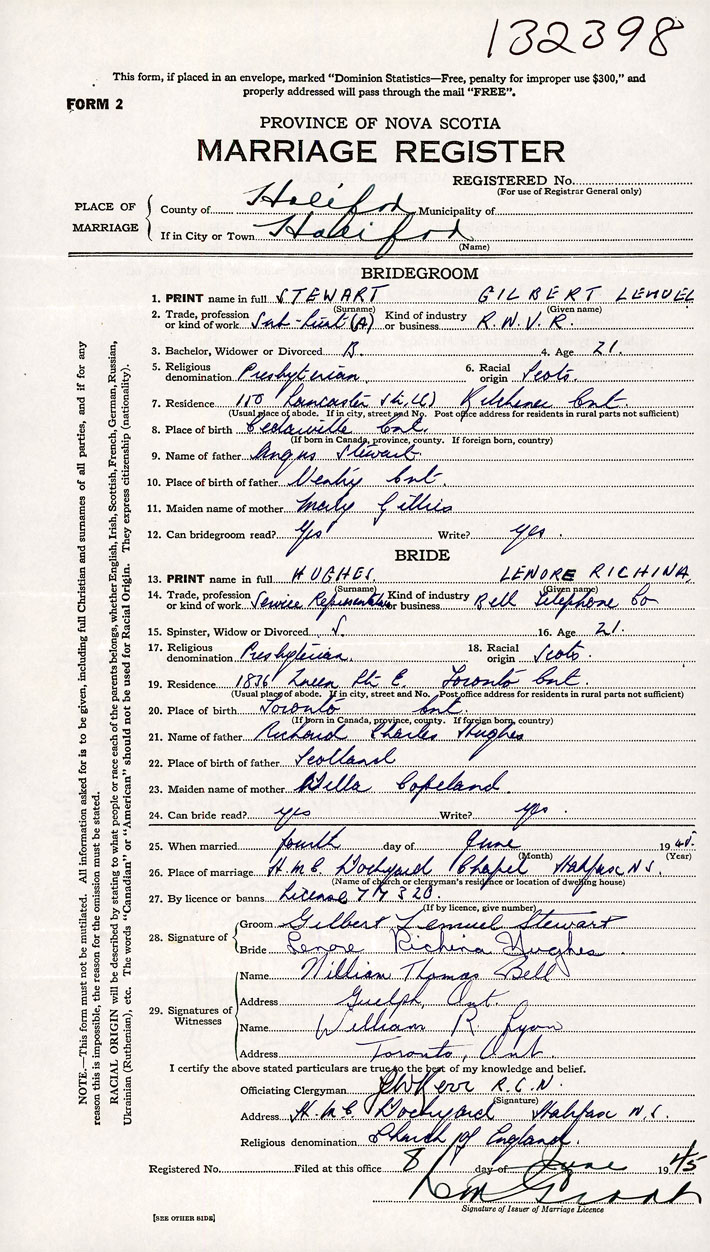 132398
This form, if placed in an envelope, marked “Dominion Statistics—Free, penalty for improper use $300,” and
properly addressed will pass through the mail “FREE”.
FORM 2
PROVINCE OF NOVA SCOTIA
MARRIAGE REGISTER
REGISTERED No.
(For use of Registrar General only)
PLACE OF MARRIAGE
County of Halifax Municipality of
If in City or Town Halifax
(Name)
BRIDEGROOM
1. PRINT name in full STEWART GILBERT LEMUEL
(Surname) (Given name)
2. Trade, profession or kind of work Sub-Lieut (A) Kind of industry or business R.N.V.R.
3. Bachelor, Widower or Divorced B. 4. Age 21.
5. Religious denomination Presbyterian. 6. Racial origin Scots.
7. Residence 110 Lancaster St. Kitchener Ont.
(Usual place of abode. If in city, street and No. Post office address for residents in rural parts not sufficient)
8. Place of birth Cedarville Ont.
(If born in Canada, province, county. If foreign born, country)
9. Name of father Angus Stewart.
10. Place of birth of father Ont.
11. Maiden name of mother Mary Gillies
12. Can bridegroom read? Yes Write? Yes.
BRIDE
13. PRINT name in full HUGHES. LENORE RICHINA.
(Surname) (Given name)
14. Trade, profession or kind of work Service Representative Kind of industry or business Bell Telephone Co
15. Spinster, Widow or Divorced S. 16. Age 21.
17. Religious denomination Presbyterian. 18. Racial origin Scots.
19. Residence 1836 Queen St. E. Toronto Ont.
(Usual place of abode. If in city, street and No. Post office address for residents in rural parts not sufficient)
20. Place of birth Toronto Ont.
(If born in Canada, province, county. If foreign born, country)
21. Name of father Richard Charles Hughes
22. Place of birth of father Scotland
23. Maiden name of mother Copeland.
24. Can bride read? yes Write? yes.
25. When married fourth day of June 1945.
(Month) (Year)
26. Place of marriage H.M.C. Dockyard Chapel Halifax N.S.
(Name of church or clergyman's residence or location of dwelling house)
27. By licence or banns License
(If by licence, give number)
28. Signature of
Groom Gilbert Lemuel Stewart
Bride Lenore Richina Hughes.
29. Signatures of Witnesses
Name William Thomas Bell
Address Guelph, Ont.
Name William R. Lyon
Address Toronto, Ont.
I certify the above stated particulars are true to the best of my knowledge and belief.
Officiating Clergyman Kerr R.C.N.
(Signature)
Address H.M.C. Dockyard Halifax N.S.
Religious denomination Church of England.
Registered No. Filed at this office 8 day of June 1945
Grant
Signature of Issuer of Marriage Licence
[SEE OTHER SIDE]
NOTE.—This form must not be mutilated. All information asked for is to be given, including full Christian and surnames of all parties, and if for any
reason this is impossible, the reason for the omission must be stated.
RACIAL ORIGIN will be described by stating to what people or race each of the parents belongs, whether English, Irish, Scottish, French, German, Russian,
Ukrainian (Ruthenian), etc. The words “Canadian” or “American” should not be used for Racial Origin. They express citizenship (nationality).